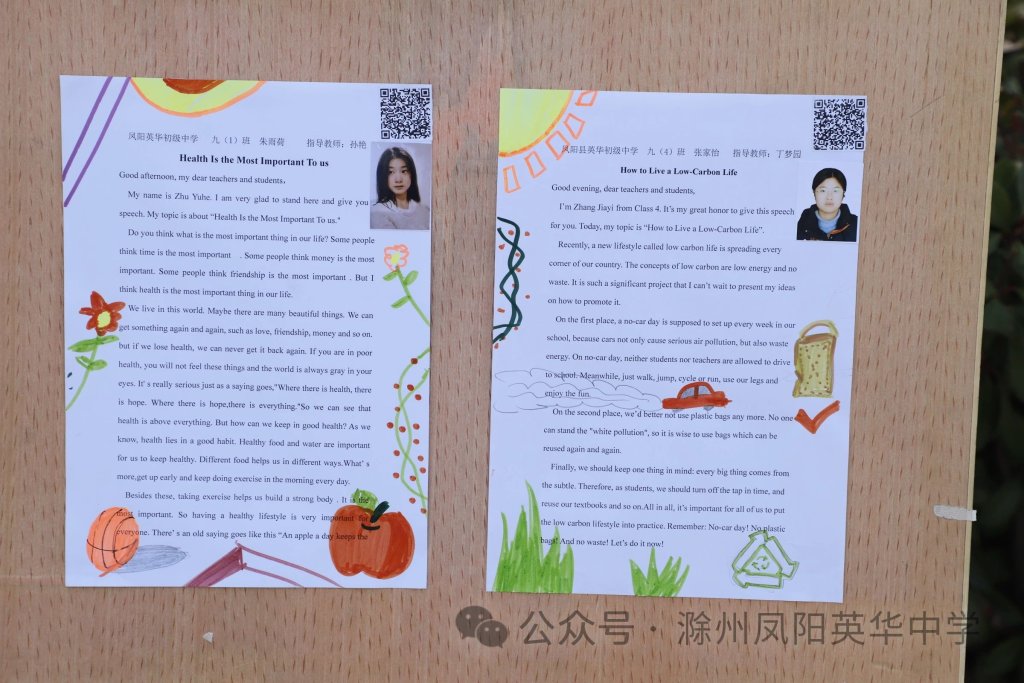 凤阳英华初级中学 九（1）班 朱雨荷 指导教师：孙艳
Health Is the Most Important To us
Good afternoon, my dear teachers and students,
My name is Zhu Yuhe. I am very glad to stand here and give you
speech. My topic is about “Health Is the Most Important To us."
Do you think what is the most important thing in our life? Some people
think time is the most important . Some people think money is the most
important. Some people think friendship is the most important . But I
think health is the most important thing in our life.
We live in this world. Maybe there are many beautiful things. We can
get something again and again, such as love, friendship, money and so on.
but if we lose health, we can never get it back again. If you are in poor
health, you will not feel these things and the world is always gray in your
eyes. It' s really serious just as a saying goes,"Where there is health, there
is hope. Where there is hope,there is everything."So we can see that
health is above everything. But how can we keep in good health? As we
know, health lies in a good habit. Healthy food and water are important
for us to keep healthy. Different food helps us in different ways.What' s
more,get up early and keep doing exercise in the morning every day.
Besides these, taking exercise helps us build a strong body . It is the
most important. So having a healthy lifestyle is very important for
everyone. There' s an old saying goes like this “An apple a day keeps the
凤阳县英华初级中学 九（4）班 张家怡 指导教师：丁梦园
How to Live a Low-Carbon Life
Good evening, dear teachers and students,
I’m Zhang Jiayi from Class 4. It’s my great honor to give this speech
for you. Today, my topic is “How to Live a Low-Carbon Life”.
Recently, a new lifestyle called low carbon life is spreading every
corner of our country. The concepts of low carbon are low energy and no
waste. It is such a significant project that I can’t wait to present my ideas
on how to promote it.
On the first place, a no-car day is supposed to set up every week in our
school, because cars not only cause serious air pollution, but also waste
energy. On no-car day, neither students nor teachers are allowed to drive
to school. Meanwhile, just walk, jump, cycle or run, use our legs and
enjoy the fun.
On the second place, we’d better not use plastic bags any more. No one
can stand the "white pollution", so it is wise to use bags which can be
reused again and again.
Finally, we should keep one thing in mind: every big thing comes from
the subtle. Therefore, as students, we should turn off the tap in time, and
reuse our textbooks and so on.All in all, it’s important for all of us to put
the low carbon lifestyle into practice. Remember: No-car day! No plastic
bags! And no waste! Let’s do it now!
公众号 · 滁州凤阳英华中学